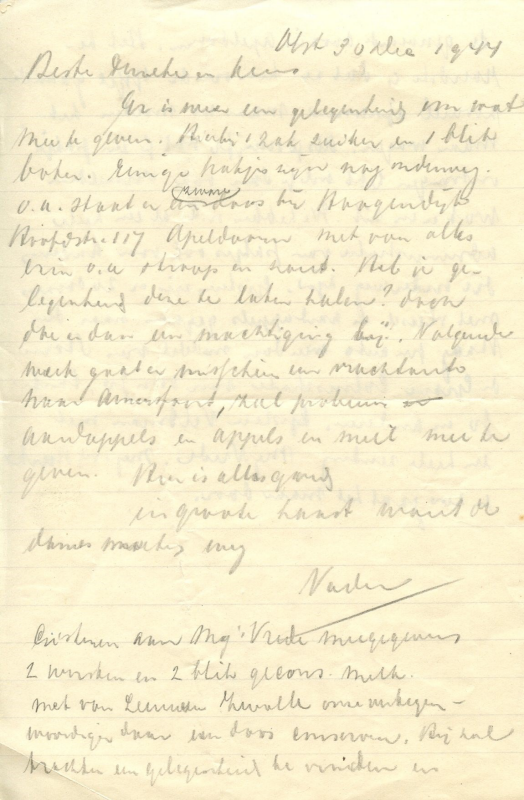 Olst 30 Dec 1944
Beste en
Er is weer een gelegenheid om wat
mee te geven. Hierbij 1 zak suiker en 1 blik
boter. Eenige pakjes zijn nog onderweg.
o.a. staat er een doos bij Hoogendijk
Hoofdstr 117 Apeldoorn met van alles
erin o.a. stroop en . Heb je ge-
legenheid deze te laten halen? doch
doe er dan een machtiging bij. Volgende
week gaat er misschien een vrachtauto
naar Amersfoort, zal probeeren
aardappels en appels en meel mee te
geven. Hier is alles goed
in groote haast want de
dames moeten weg
Vader
Gisteren aan Mej. Vrede meegegeven
2 worsten en 2 blik gecons. melk.
met van Leeuwen Zwolle onze vertegen-
woordiger daar een doos conserven. Hij zal
trachten een gelegenheid te vinden en